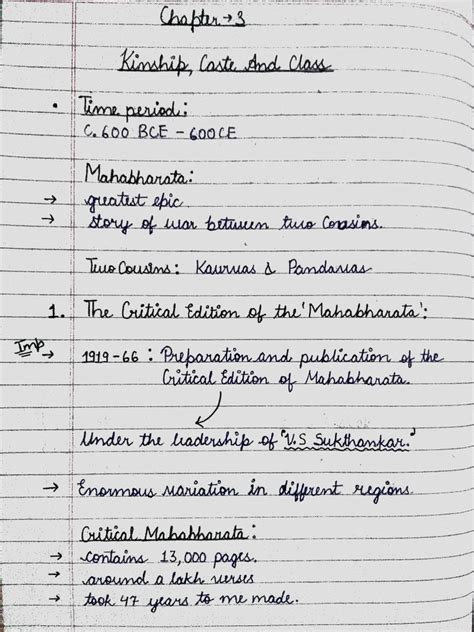 Chapter → 3
Kinship, Caste And Class
• Time period:
C. 600 BCE - 600 CE
Mahabharata:
→ greatest epic
→ story of war between two Cousins.
Two Cousins: Kauruas & Pandavas
1. The Critical Edition of the 'Mahabharata':
Imp → 1919-66 : Preparation and publication of the
Critical Edition of Mahabharata.
Under the leadership of "V.S Sukthankar."
→ Enormous variation in different regions.
Critical Mahabharata:
→ contains 13,000 pages.
→ around a lakh verses
→ took 47 years to me made.